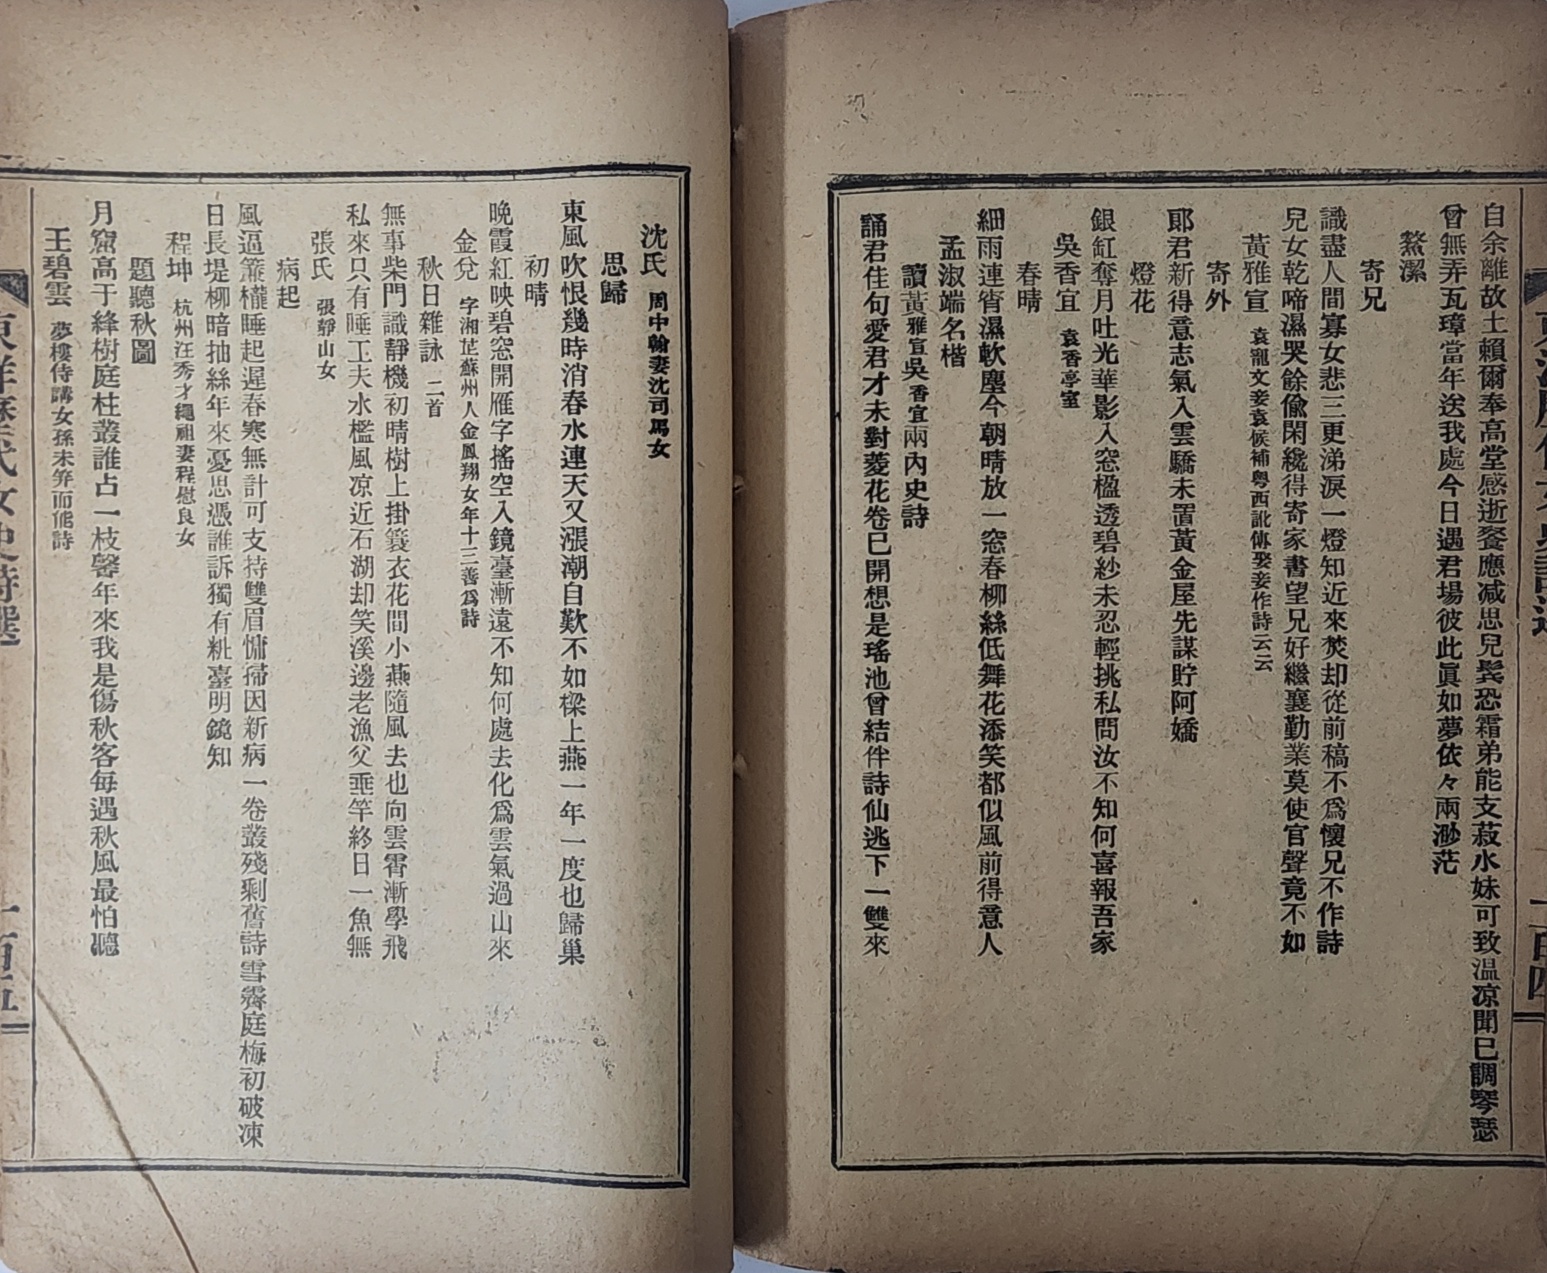 自余離故土賴爾奉高堂感逝餐應减思兒鬂恐霜弟能支菽水妹可致温凉聞已調琴瑟
曾無弄瓦璋當年送我處今日遇君塲彼此眞如夢依々兩渺茫
嫯潔
寄兄
識盡人間寡女悲三更涕淚一燈知近來焚却從前稿不爲懷兄不作詩
兒女乾啼濕哭餘偸閑纔得寄家書望兄好繼襄勤業莫使官聲竟不如
黃雅宣 袁寵文妾袁候補粵西訛傳娶妾作詩云云
寄外
郎君新得意志氣入雲驕未置黃金屋先謀貯阿嬌
燈花
銀缸奪月吐光華影入窓楹透碧紗未忍輕挑私問汝不知何喜報吾家
吳香宜 袁香亭室
春晴
細雨連宵濕軟塵今朝晴放一窓春柳絲低舞花添笑都似風前得意人
孟淑端名楷
讀黃雅宣吳香宜兩內史詩
誦君佳句愛君才未對菱花卷已開想是瑤池曾結伴詩仙逃下一雙來
沈氏 周中翰妻沈司馬女
思歸
東風吹恨幾時消春水連天又漲潮自歎不如樑上燕一年一度也歸巢
初晴
晩霞紅映碧窓開雁字搖空入鏡臺漸遠不知何處去化爲雲氣過山來
金兌 字湘芷蘇州人金鳳翔女年十三善爲詩
秋日雜詠 二首
無事柴門識靜機初晴樹上掛簑衣花間小燕隨風去也向雲霄漸學飛
私來只有睡工夫水檻風凉近石湖却笑溪邊老漁父垂竿終日一魚無
張氏 張靜山女
病起
風過簾櫳睡起遲春寒無計可支持雙眉慵掃因新病一卷叢殘剩舊詩雪霽庭梅初破凍
日長堤柳暗抽絲年來憂思憑誰訴獨有粧臺明鏡知
程坤 杭州汪秀才繩祖妻程慰良女
題聽秋圖
月窟高于絳樹庭柱叢誰占一枝馨年來我是傷秋客每遇秋風最怕聽
王碧雲 夢樓侍講女孫未笄而能詩
東洋歷代女史詩選
一百五